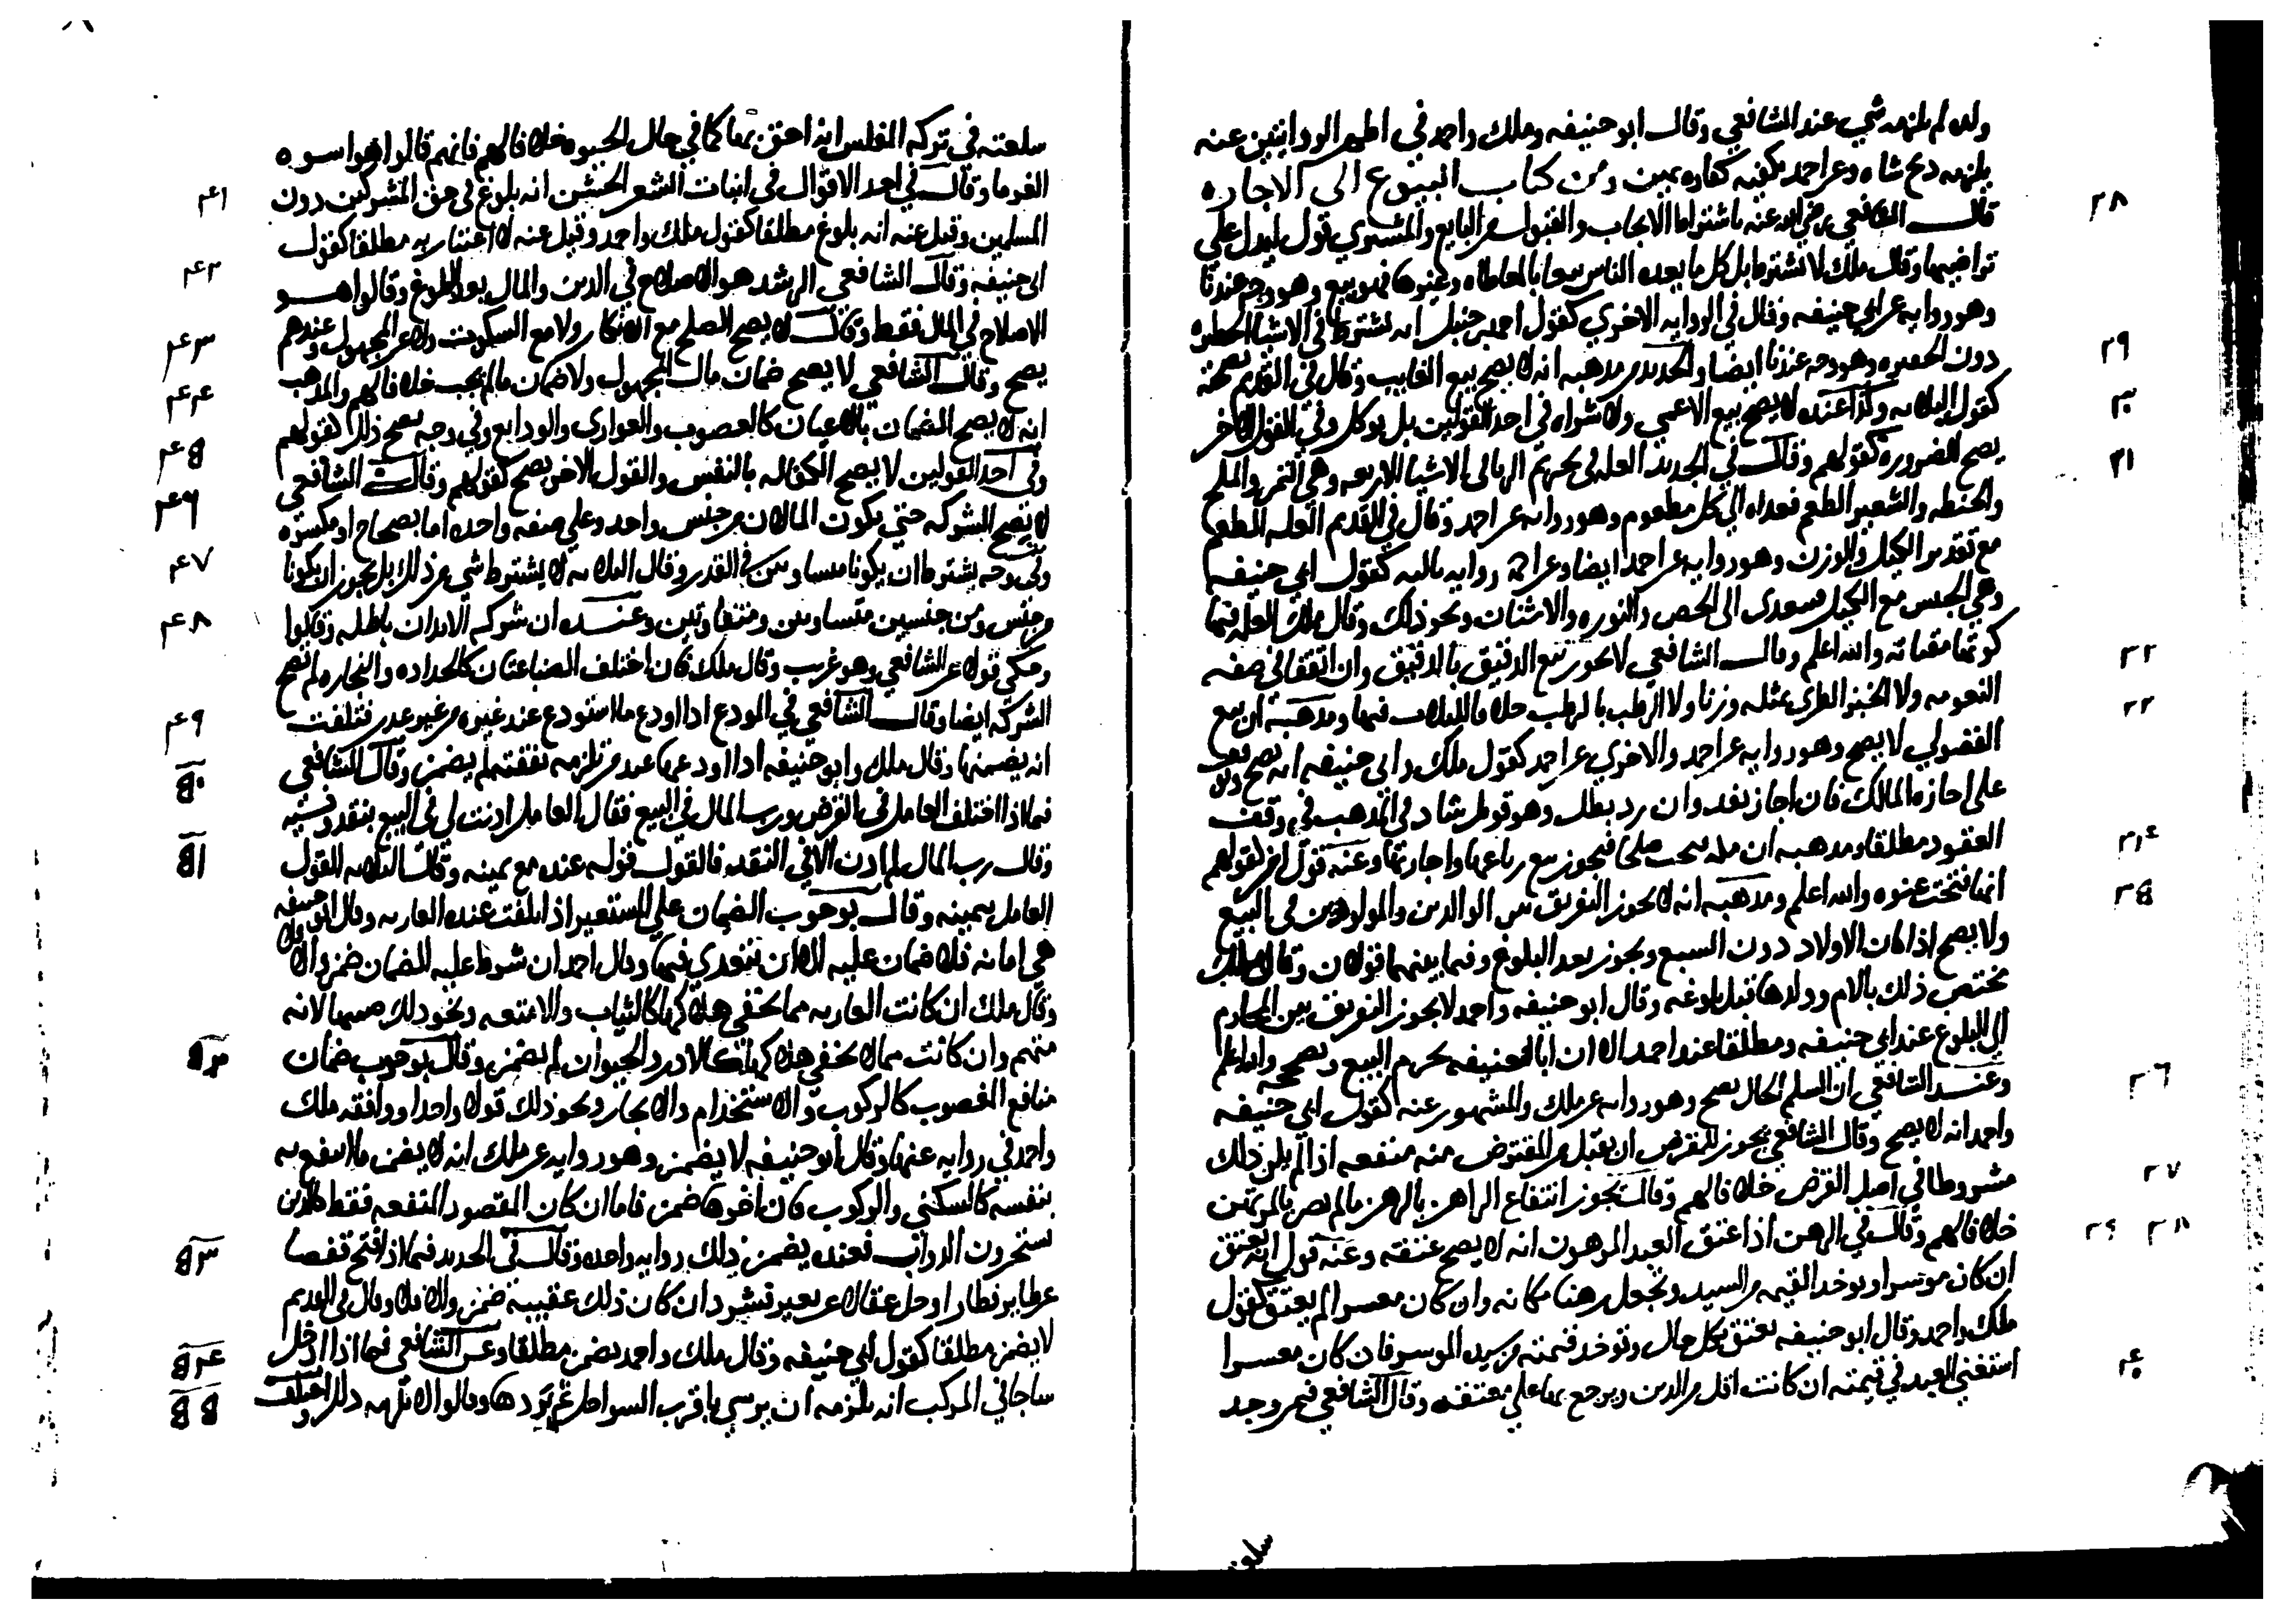 ولده لم يلزمه شي عند الشافعي وقال ابو حنيفه وملك واحمد في اظهر الروايتين عنه
يلزمه دبح شاه وعن احمد يكفيه كفاره يمين ومن كتاب البيوع الى الاجاره
٢٨
قال الشافعي رضي الله عنه باشتراط الايجاب والقبول من البايع والمشتري قول ليدل علي
تراضيهما وقال ملك لا يشترط بل كل ما يعده الناس بيعا بالمعاطاه وغيرها فهو بيع وهو وجه عندنا
وهو روايه عن ابي حنيفه وقال في الروايه الاخري كقول احمد بن حنبل انه يشترط في الاشيا الخطره
٢٩
دون الحقيره وهو وجه عندنا ايضا والجديد من مدهبه انه لا يصح بيع الغايب وقال في القديم يصح
٣٠
كقول الثلاثه وكذا عنده لا يصح بيع الاعمي ولا شراوه في احد القولين بل يوكل وفي القول الاخر
٣١
يصح للضروره كقولهم وقال في الجديد العله في تحريم الربا في الاشيا الاربعه وهي التمر والملح
والحنطه والشعير الطعم فعداه الي كل مطعوم وهو روايه عن احمد وقال في القديم العله الطعم
مع تقدير الكيل والوزن وهو روايه عن احمد ايضا وعن احمد روايه ثالثه كقول ابي حنيفه
وهي الجنس مع الكيل فيعدى الى الجص والنوره والاشنان ونحو ذلك وقال ملك العله فيها
٣٢
كونها مقتاته والله اعلم وقال الشافعي لا يجوز بيع الدقيق بالدقيق وان اتفقا في صفه
٣٣
النعومه ولا الخبز الطري بمثله وزنا ولا الرطب بالرطب خلافا للثلاث فيها ومذهبه ان بيع
الفضولي لا يصح وهو روايه عن احمد والاخري عن احمد كقول ملك وابي حنيفه انه يصح ويقف
على اجازه المالك فان اجاز نفد وان رد بطل وهو قول شاد في المدهب في وقف
٣٤
العقود مطلقا ومدهبه ان مكه فتحت صلحا فيجوز بيع رباعها واجارتها وعنه قول اخر كقولهم
٣٥
انها فتحت عنوه والله اعلم ومدهبه انه لا يجوز التفريق بين الوالدين والمولودين في البيع
ولا يصح اذا كان الاولاد دون السبع ويجوز بعد البلوغ وفيما بينهما قولان وقال ملك
مختص ذلك بالام وولدها قبل بلوغه وقال ابو حنيفه واحمد لا يجوز التفريق بين المحارم
الى البلوغ عند ابي حنيفه ومطلقا عند احمد الا ان ابا حنيفه يحرم البيع ويصححه والله اعلم
٣٦
وعند الشافعي ان السلم الحال يصح وهو روايه عن ملك والمشهور عنه كقول ابي حنيفه
واحمد انه لا يصح وقال الشافعي يجوز للمقرض ان يقبل من المقترض منه منفعه اذا لم يكن ذلك
٣٧
مشروطا في اصل القرض خلافا لهم وقال يجوز انتفاع الراهن بالرهن ما لم يضر بالمرتهن
٣٨ ٣٩
خلافا لهم وقال في الرهن اذا عتق العبد المرهون انه لا يصح عتقه وعنه قول انه يعتق
ان كان موسرا ويوخد القيمه من السيد وتجعل رهنا مكانه وان كان معسرا لم يعتق كقول
ملك واحمد وقال ابو حنيفه يعتق بكل حال وتوخد قيمته من سيده الموسر فان كان معسرا
٤٠
استسعي العبد في قيمته ان كانت اقل من الدين ويرجع بها علي معتقه وقال الشافعي فيمن وجد
سلعته
سلعته في تركه المفلس انه احق بها كما في حال الحيوه خلافا لهم فانهم قالوا هو اسوه
٤١
الغرما وقال في احد الاقوال في انبات الشعر الخشن انه بلوغ في حق المشركين دون
المسلمين وقيل عنه انه بلوغ مطلقا كقول ملك واحمد وقيل عنه لا اعتبار به مطلقا كقول
٤٢
ابي حنيفه وقال الشافعي الرشد هو الاصلاح في الدين والمال بعد البلوغ وقالوا هو
٤٣
الاصلاح في المال فقط وقال لا يصح الصلح مع الانكار ولا مع السكوت ولا عن المجهول وعندهم
٤٤
يصح وقال الشافعي لا يصح ضمان مال المجهول ولا ضمان ما لم يجب خلافا لهم والمدهب
انه لا يصح الضمان بالاعيان كالغصوب والعواري والودايع وفي وجه يصح ذلك كقولهم
٤٥
وفي احد القولين لا يصح الكفاله بالنفس والقول الاخر يصح كقولهم وقال الشافعي
٤٦
لا يصح الشركه حتي يكون المالان من جنس واحد وعلي صفه واحده اما بصحاح او مكسره
٤٧
وفي وجه يشترط ان يكونا متساويين في القدر وقال الثلاثه لا يشترط شي من ذلك بل يجوز ان يكونا
٤٨
من جنس ومن جنسين متساويين ومتفاوتين وعنده ان شركه الابدان باطله وقالوا
وحكي قول عن الشافعي وهو غريب وقال ملك فان اختلف الصناعتان كالحداده والنجاره لم تصح
٤٩
الشركه ايضا وقال الشافعي في المودع اذا اودع ما استودع عند غيره من غير عدر فتلفت
٥٠
انه يضمنها وقال ملك وابو حنيفه اذا اودعها عند من تلزمه نفقته لم يضمن وقال الشافعي
فيما اذا اختلف العامل في القرض ورب المال في البيع فقال العامل ادنت لي في البيع بنقد ونسيه
٥١
وقال رب المال لم ادن الا في النقد فالقول قوله عنده مع يمينه وقال الثلاثه القول
العامل بيمينه وقال بوجوب الضمان علي المستعير اذا تلفت عنده العاريه وقال ابو حنيفه
هي امانه فلا ضمان عليه الا ان يتعدي فيها وقال احمد ان شرط عليه الضمان ضمن والا فلا
وقال ملك ان كانت العاريه مما يخفي هلاكها كالثياب والامتعه ونحو ذلك ضمنها لانه
٥٢
متهم وان كانت مما لا يخفي هلاكها كالادر والحيوان لم يضمن وقال بوجوب ضمان
منافع المغصوب كالركوب والاستخدام والايجار ونحو ذلك قولا واحدا ووافقه ملك
واحمد في روايه عنهما وقال ابو حنيفه لا يضمن وهو روايه عن ملك انه لا يضمن ما انتفع به
بنفسه كالسكني والركوب فان اخرها ضمن فاما ان كان المقصود المنفعه فقط كالدين
٥٣
يسخرون الدواب فعنده يضمن ذلك روايه واحده وقال في الجديد فيما اذا فتح قفصا
عن طاير فطار او حل عقالا عن بعير فشرد ان كان ذلك عقيبه ضمن والا فلا وقال في القديم
٥٤
لا يضمن مطلقا كقول ابي حنيفه وقال ملك واحمد يضمن مطلقا وعن الشافعي فيما اذا ادخل
٥٥
ساجا في المركب انه يلزمه ان يرسي باقرب السواحل ثم يردها وقالوا لا يلزمه ذلك